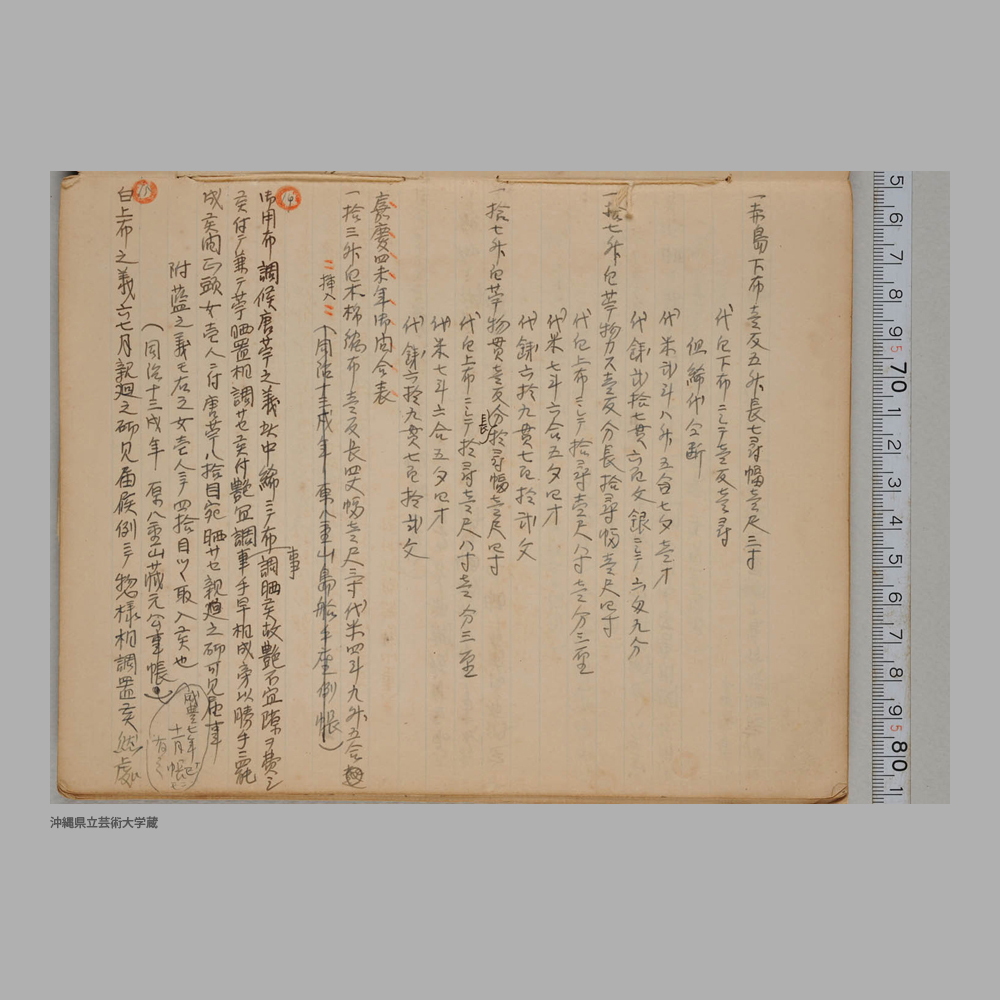 一赤島下布壱反五升長七尋幅壱尺二寸
代白下布ニシテ壱反壱尋
但綸代分断
代米弐斗八升五合七夕壱才
代銭弐拾七貫六百文銀ニシテ六匁九分
一拾七升白苧物カス壱反分長拾尋幅壱尺四寸
代白上布ニシテ拾尋壱尺八寸壱分三厘
代米七斗六合五夕四才
代銭六拾九貫七百拾弐文
一拾七升白苧物貫壱反分長拾尋幅壱尺四寸
代白上布ニシテ拾尋壱尺八寸壱分三厘
代米七斗六合五夕四才
代銭六拾九貫七百拾弐文
嘉慶四未年御問合表
一拾三升白木棉縞布壱反長四丈幅壱尺三寸代米四斗九升五合
挿入
(同治十三戌年 原八重山島船手座例帳)
14
御用布調候唐苧之義 中綛ニテ布調晒候故艶不宜隙ヲ費シ
候付テ兼テ苧晒置相調サセ候付艶宜調事手早相成旁以勝手ニ罷
成候間正頭女壱人ニ付唐苧八拾目宛晒サセ親廻之砌可見届事
事
附藍之義モ右之女壱人ニテ四拾目ツヽ取入候也
(同治十三戌年 原八重山蔵元公事帳)
咸豊七年
十一月帳
15
白上布之義六七月親廻之砌見届候例ニテ惣様相調置候然處
5 6 7 8 95 70 1 2 3 4 5 6 7 8 95 80 1
沖縄県立芸術大学蔵